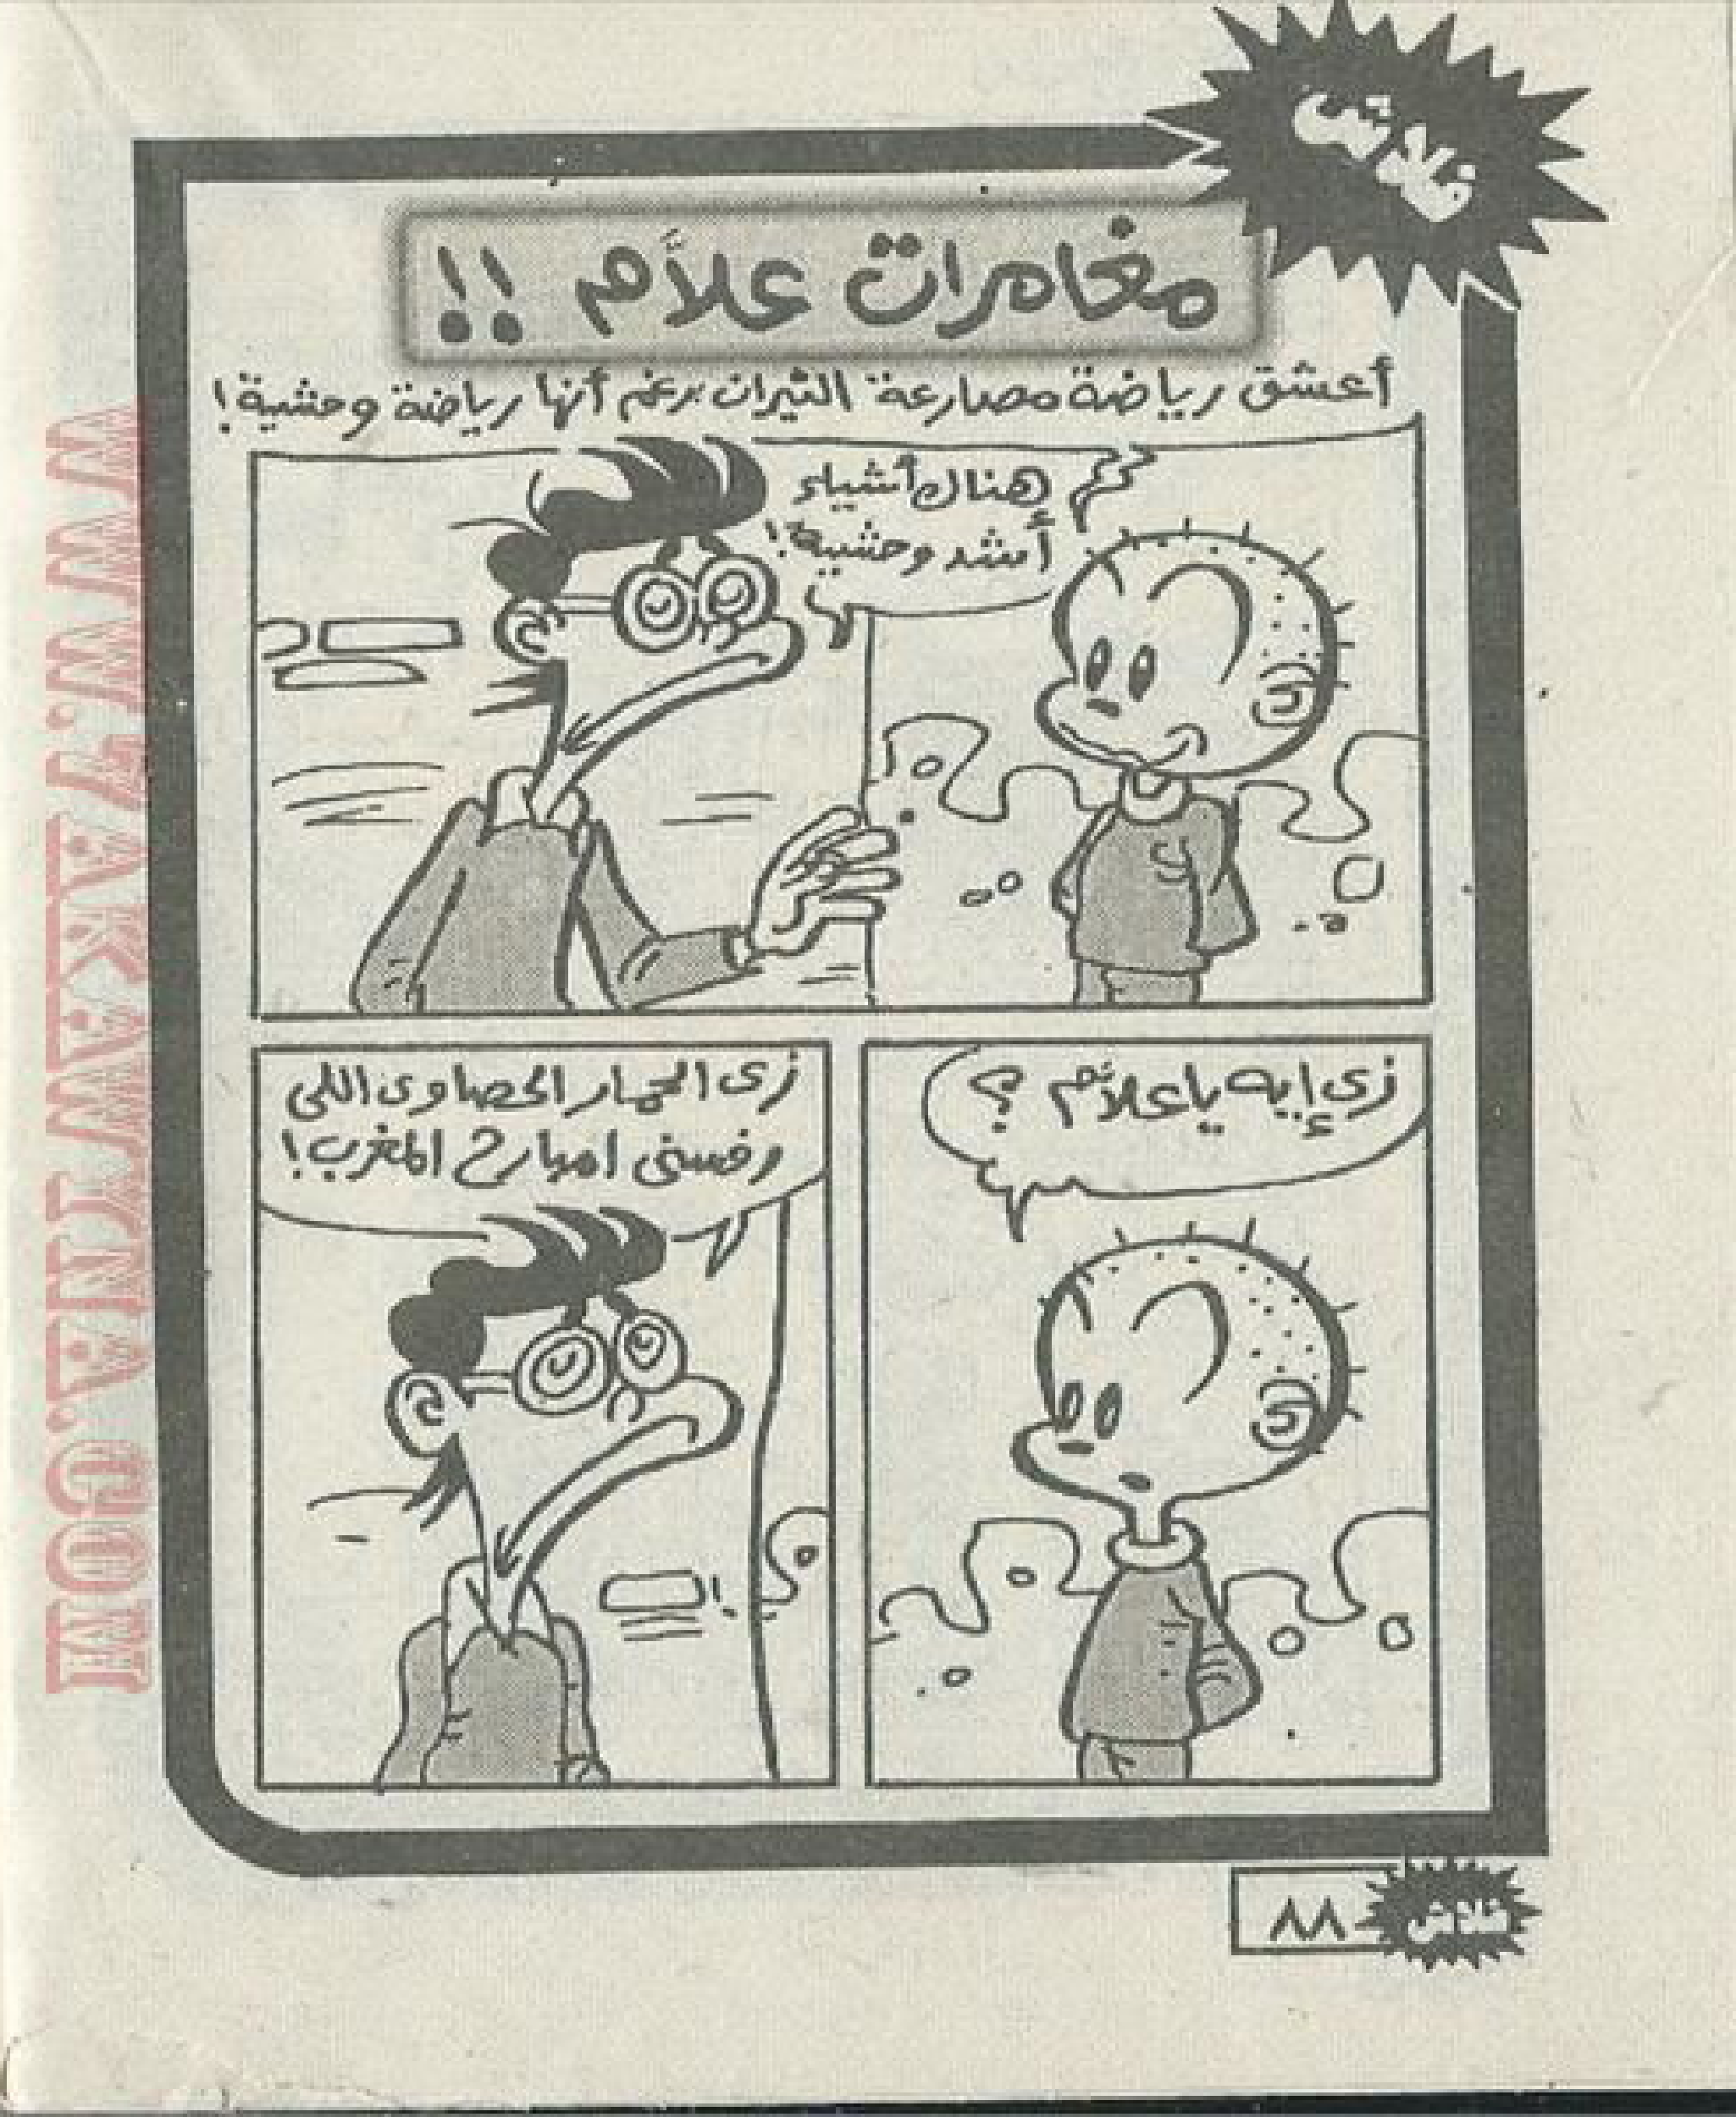 فلاش
مغامرات علاَّم !!
أعشق رياضة مصارعة الثيران برغم أنها رياضة وحشية!
هناك أشياء
أشد وحشية!
زى إيه يا علاَّم ؟
زى الحمار الحصاوى اللى
رفسنى امبارح المغرب!
فلاش
٨٨
WWW.7AKAWITNA.COM